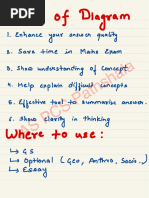 of Diagram
1. Enhance your answer quality
2. Save time in Mains Exam
3. Show understanding of concept
4. Help explain difficult concepts
5. Effective tool to summarise answer.
6. Show clarity in thinking
Where to use :
↳ GS
↳ Optional (Geo, Anthro, Socio..)
↳ Essay